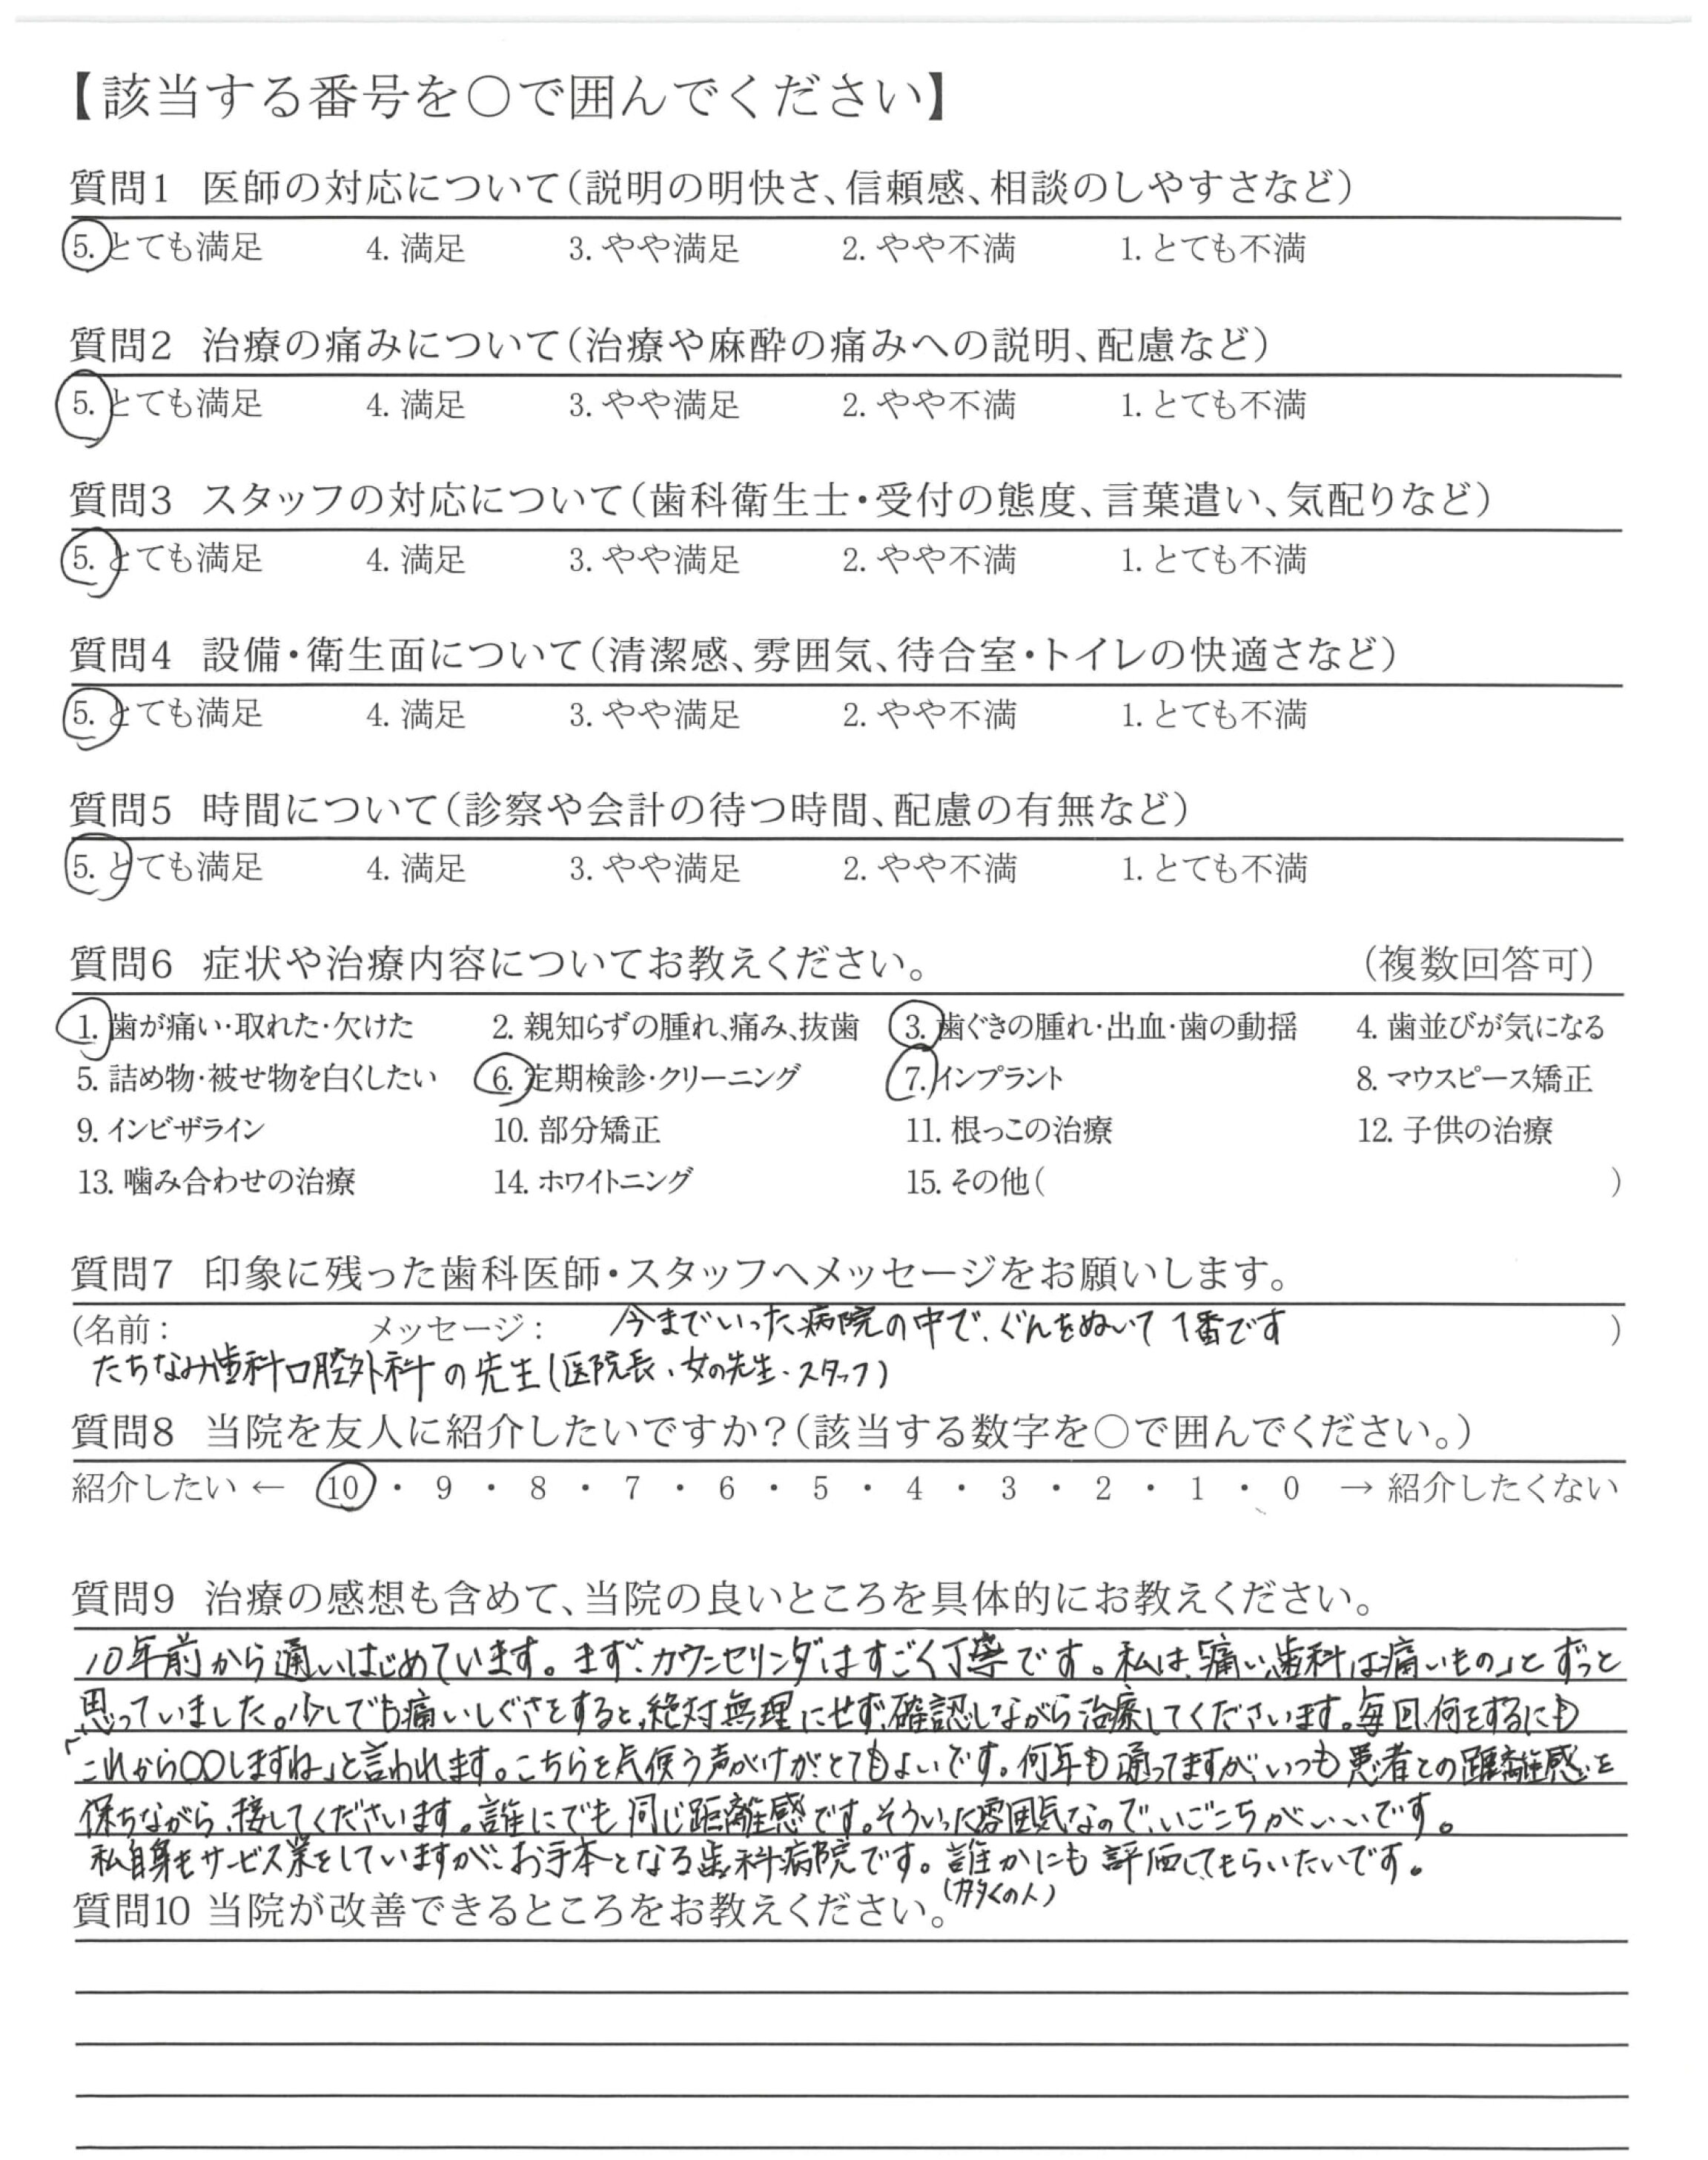 【該当する番号を○で囲んでください】
質問1 医師の対応について(説明の明快さ、信頼感、相談のしやすさなど)
5. とても満足 4. 満足 3. やや満足 2. やや不満 1. とても不満
質問2 治療の痛みについて(治療や麻酔の痛みへの説明、配慮など)
5. とても満足 4. 満足 3. やや満足 2. やや不満 1. とても不満
質問3 スタッフの対応について(歯科衛生士・受付の態度、言葉遣い、気配りなど)
5. とても満足 4. 満足 3. やや満足 2. やや不満 1. とても不満
質問4 設備・衛生面について(清潔感、雰囲気、待合室・トイレの快適さなど)
5. とても満足 4. 満足 3. やや満足 2. やや不満 1. とても不満
質問5 時間について(診察や会計の待つ時間、配慮の有無など)
5. とても満足 4. 満足 3. やや満足 2. やや不満 1. とても不満
質問6 症状や治療内容についてお教えください。 (複数回答可)
1. 歯が痛い・取れた・欠けた 2. 親知らずの腫れ、痛み、抜歯 3. 歯ぐきの腫れ・出血・歯の動揺 4. 歯並びが気になる
5. 詰め物・被せ物を白くしたい 6. 定期検診・クリーニング 7. インプラント 8. マウスピース矯正
9. インビザライン 10. 部分矯正 11. 根っこの治療 12. 子供の治療
13. 噛み合わせの治療 14. ホワイトニング 15. その他( )
質問7 印象に残った歯科医師・スタッフへメッセージをお願いします。
(名前: メッセージ: 今までいった病院の中で、ぐんをぬいて1番です )
たちなみ歯科口腔外科の先生(医院長、女の先生、スタッフ)
質問8 当院を友人に紹介したいですか?(該当する数字を○で囲んでください。)
紹介したい ← 10 ・ 9 ・ 8 ・ 7 ・ 6 ・ 5 ・ 4 ・ 3 ・ 2 ・ 1 ・ 0 → 紹介したくない
質問9 治療の感想も含めて、当院の良いところを具体的にお教えください。
10年前から通いはじめています。まず、カウンセリングはすごく丁寧です。私は、「痛い、歯科は痛いもの」とずっと
思っていました。少しでも痛いしぐさをすると、絶対無理にせず、確認しながら治療してくださいます。毎回、何をするにも
「これから○○しますね」と言われます。こちらを気使う声がけがとてもよいです。何年も通ってますが、いつも患者との距離感を
保ちながら、接してくださいます。誰にでも同じ距離感です。そういった雰囲気なので、いごこちがいいです。
私自身もサービス業をしていますが、お手本となる歯科病院です。誰かにも評価してもらいたいです。
(多くの人)
質問10 当院が改善できるところをお教えください。